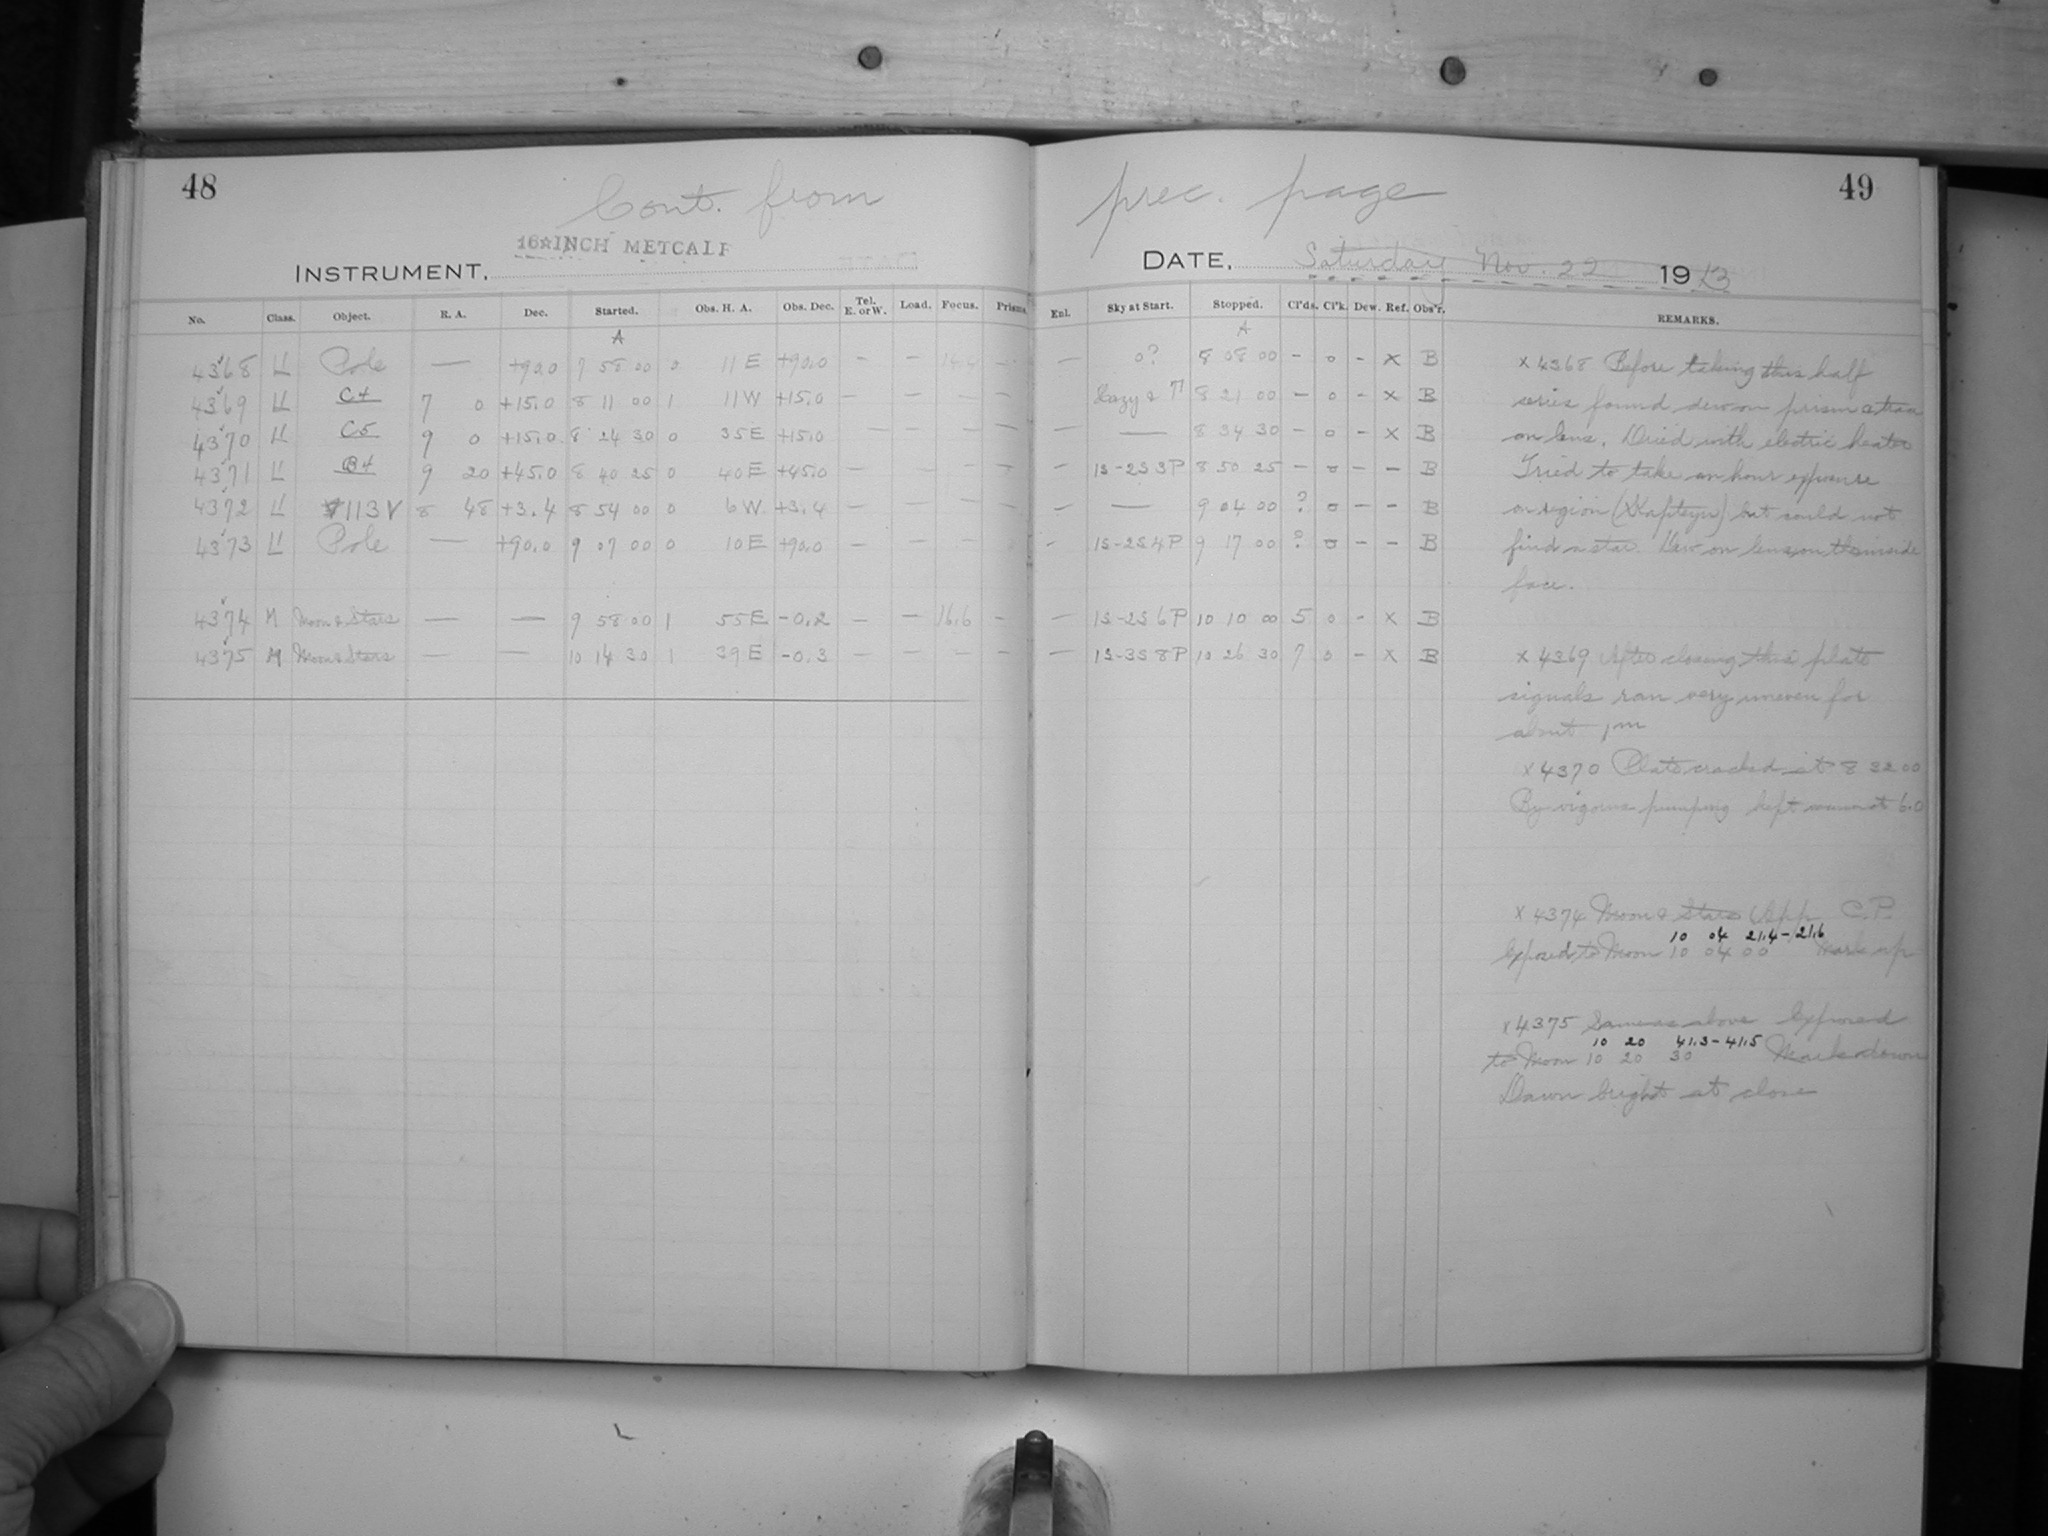 48
Cont. from prec. page
49
16 INCH METCALF
INSTRUMENT, DATE, Saturday Nov. 22 1913
No. Class. Object. R. A. Dec. Started. Obs. H. A. Obs. Dec. Tel. E. or W. Load. Focus. Prism. Enl. Sky at Start. Stopped. Cl'ds. Cl'k. Dew. Ref. Obs'r. REMARKS.
A A
4368 Pole — +90.0 7 58 00 0 11 E +90.0 – – – — 0? 8 08 00 – 0 – X B
4369 C4 7 0 +15.0 8 11 00 1 11 W +15.0 — – – – — Hazy & 8 21 00 – 0 – X B
4370 C5 9 0 +15.0 8 24 30 0 35 E +15.0 — – – – — — 8 34 30 – 0 – X B
4371 B4 9 20 +45.0 8 40 25 0 40 E +45.0 – – – – – 1S-2S 3P 8 50 25 – 0 – – B
4372 113 V 8 48 +3.4 8 54 00 0 6 W +3.4 – – – – – — 9 04 00 ? 0 – – B
4373 Pole — +90.0 9 07 00 0 10 E +90.0 – – – - 1S-2S 4P 9 17 00 ? 0 – – B
4374 M Moon & Stars — — 9 58 00 1 55 E -0.2 – – 16.6 – — 1S-2S 6P 10 10 00 5 0 - X B
4375 M Moon & Stars — — 10 14 30 1 39 E -0.3 – – – – — 1S-3S 8P 10 26 30 7 0 – X B
X 4368 Before taking this half
series found dew on prism & trace
on lens. Dried with electric heater
Tried to take an hour exposure
on region (Kapteyn) but could not
find a star. Dew on lens on the inside
face.
X 4369 After closing this plate
signals ran very uneven for
about 1m
X 4370 Plate cracked at 8 32 00
By vigorous pumping kept 6.0
X 4374 Moon & Stars C.P.
10 04 21.4-21.6
Exposed to Moon 10 04 00 Mark up
X 4375 Same as above Exposed
10 20 41.3-41.5
to Moon 10 20 30 Mark down
Dawn bright at close